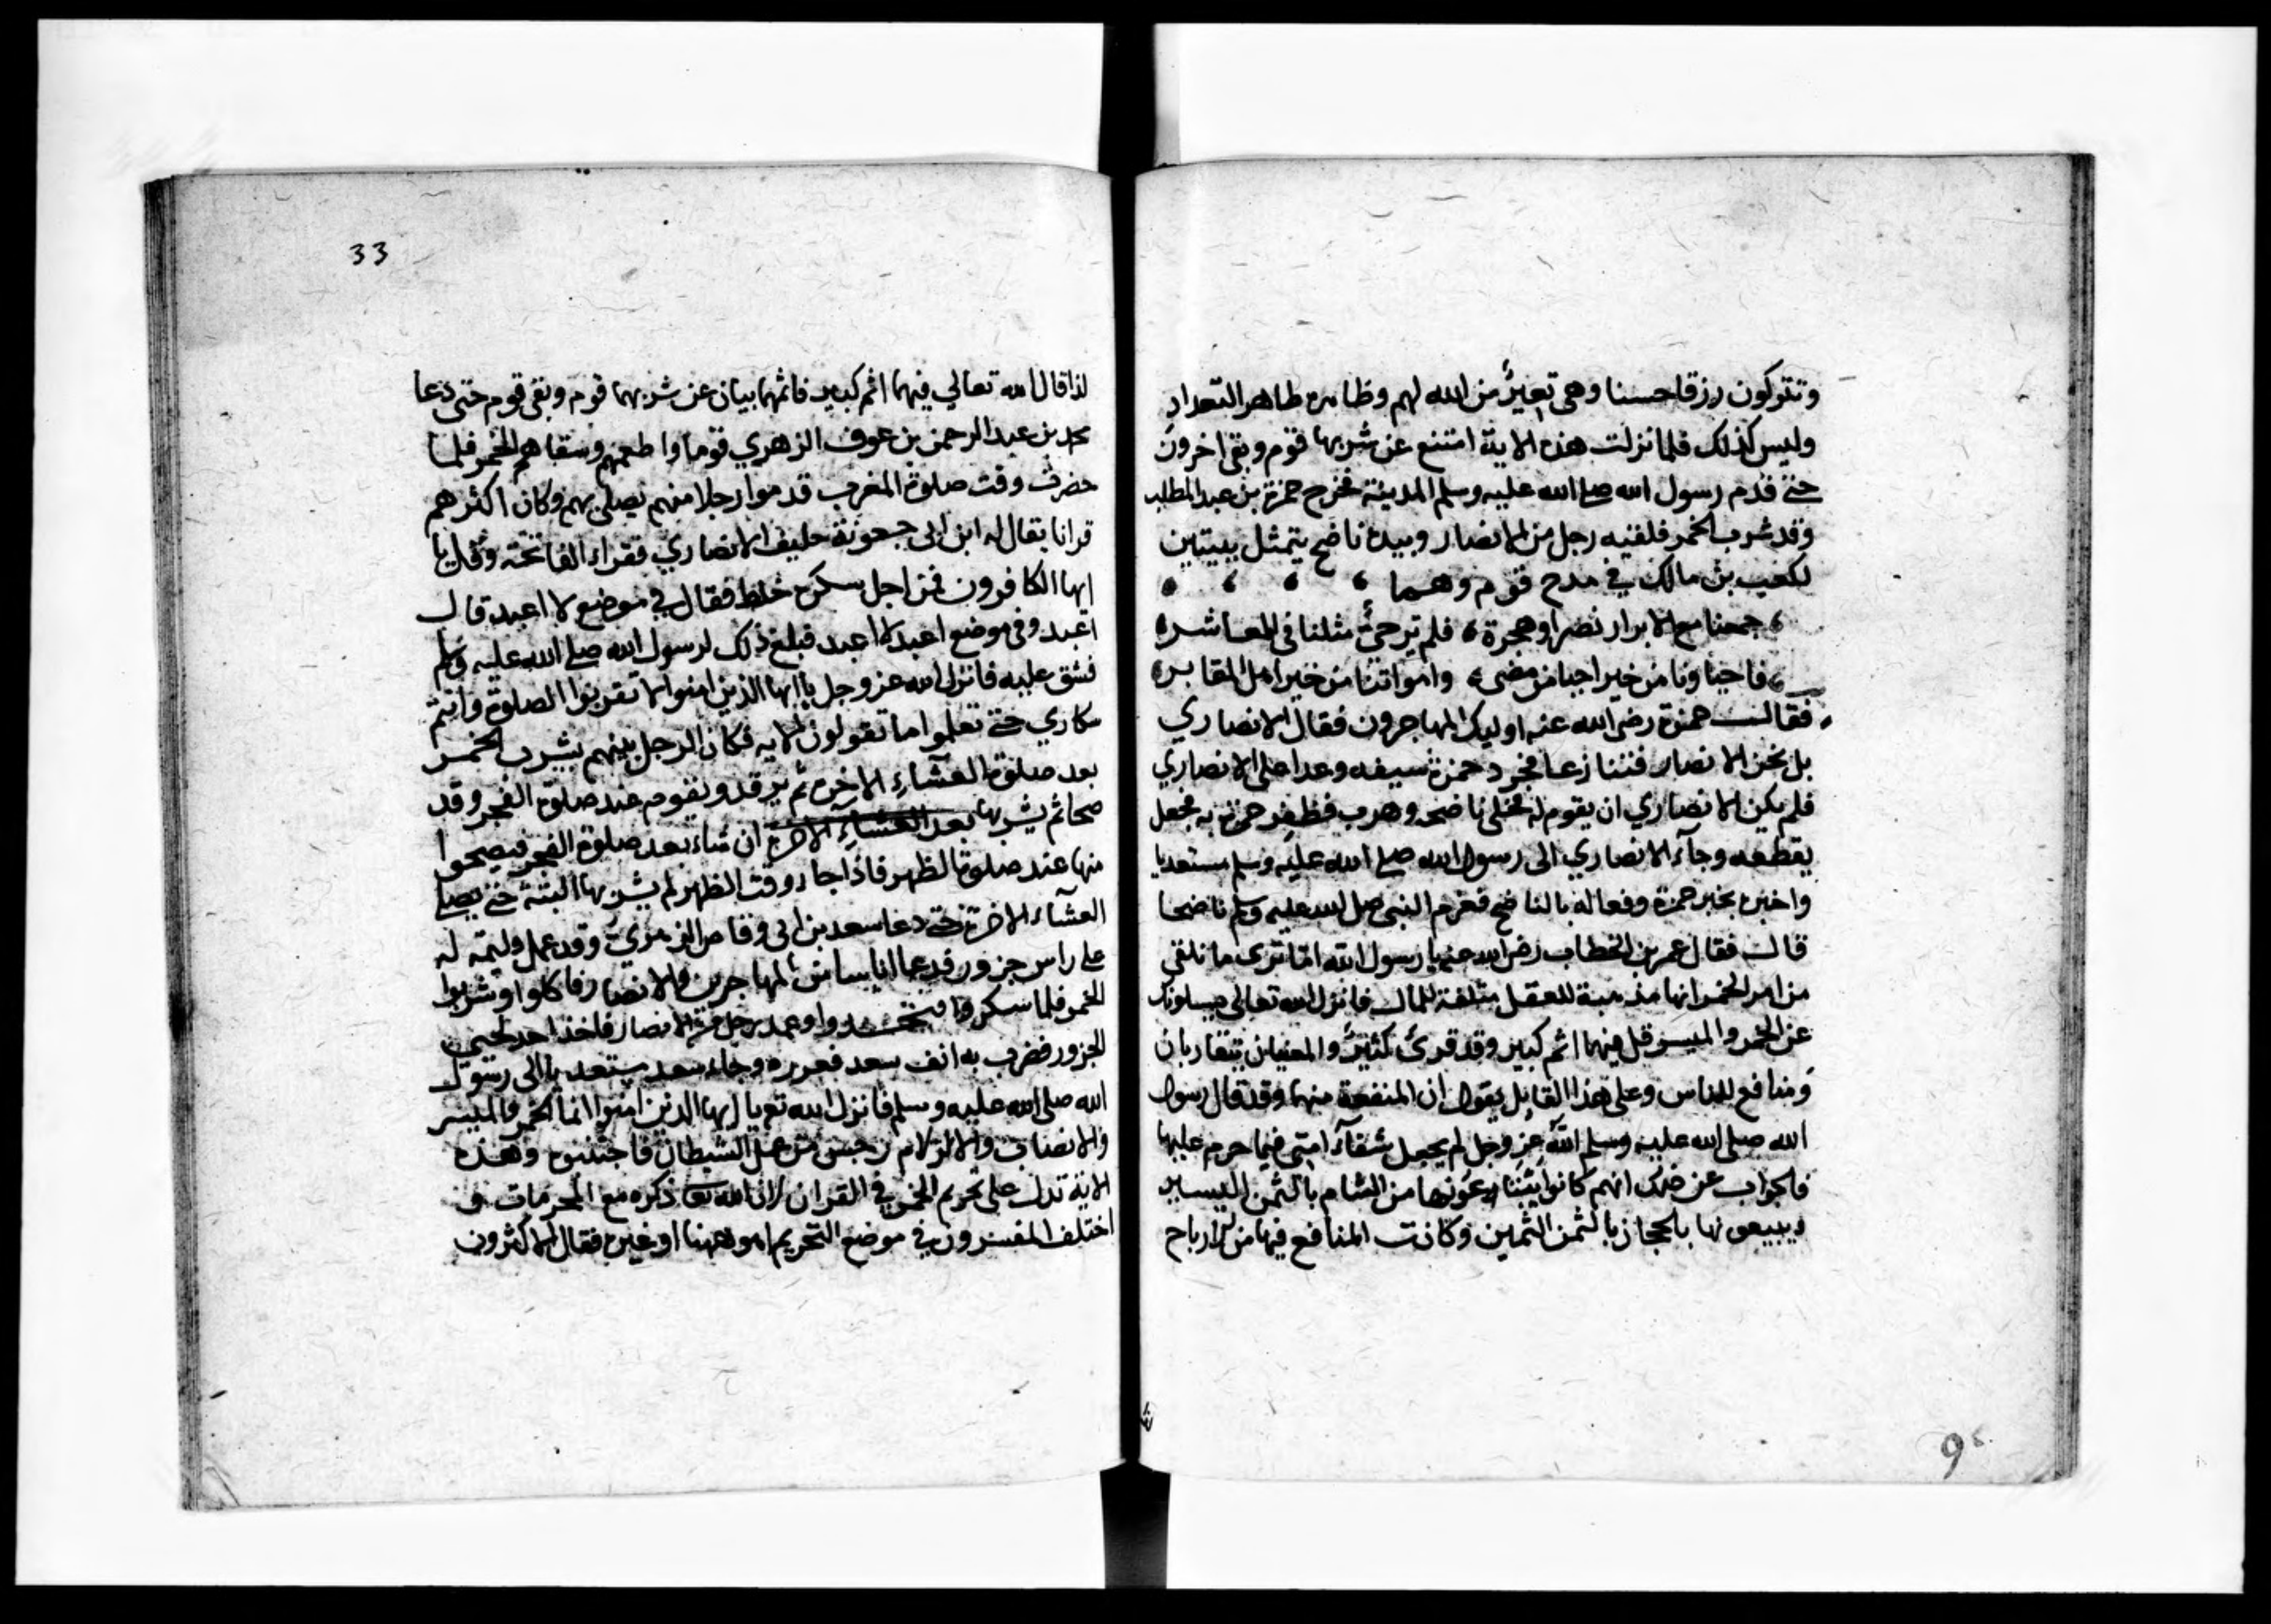 وتتركون رزقا حسنا وهي تعيير من الله لهم وظاهره ظاهر التعداد
وليس كذلك فلما نزلت هذه الاية امتنع عن شربها قوم وبقي اخرون
حتى قدم رسول الله صلى الله عليه وسلم المدينة فخرج حمزة بن عبد المطلب
وقد شرب الخمر فلقيه رجل من الانصار وبيده ناضح يتمثل ببيتين
لكعب بن مالك في مدح قوم وهما
جمعنا مع الابرار نصرا وهجرة فلم ير حي مثلنا في المعاشر
فاحياونا من خير احيا من مضى وامواتنا من خير اهل المقابر
فقالـــ حمزة رضي الله عنه اوليك المهاجرون فقال الانصاري
بل نحن الانصار فتنازعا فجرد حمزة سيفه وعدا على الانصاري
فلم يكن الانصاري ان يقوم له فخلى ناضحه وهرب فظفر حمزة به فجعل
يقطعه وجآء الانصاري الى رسول الله صلى الله عليه وسلم مستعديا
واخبره بخبر حمزة وفعاله بالناضح فغرم النبي صلى الله عليه وسلم ناضحا
قالـ فقال عمر بن الخطاب رضي الله عنه يا رسول الله اما ترى ما نلقى
من امر الخمر انها مذهبة للعقل متلفة للمال فانزل الله تعالى يسلونك
عن الخمر والميسر قل فيهما اثم كبير وقد قرئ كثير والمعنيان يتقاربان
ومنافع للناس وعلى هذا القايل يقول ان المنفعة منها وقد قال رسول
الله صلى الله عليه وسلم ان الله عز وجل لم يجعل شفآء امتي فيما حرم عليها
فالجواب عن ذلك انهم كانوا يبتاعونها من الشام بالثمن اليسير
ويبيعونها بالحجاز بالثمن الثمين وكانت المنافع فيها من الارباح
9
33
لذا قال الله تعالي فيهما اثم كبير فانتهى عن شربها قوم وبقي قوم حتى دعا
محمد بن عبد الرحمن بن عوف الزهري قوما واطعمهم وسقاهم الخمر فلما
حضرت وقت صلوة المغرب قدموا رجلا منهم يصلي بهم وكان اكثرهم
قرانا يقال له ابن ابي جعونة حليف الانصاري فقراء الفاتحة وقل يا
ايها الكافرون فمن اجل سكره خلط فقال في موضع لا اعبد قالـ
اعبد وفي موضع اعبد لا اعبد فبلغ ذلك لرسول الله صلى الله عليه وسلم
فشق عليه فانزل الله عز وجل يا ايها الذين امنوا لا تقربوا الصلوة وانتم
سكاري حتى تعلموا ما تقولون الايه فكان الرجل بينهم يشرب الخمر
بعد صلوة العشاء الاخرة ثم يرقد ويقوم عند صلوة الفجر وقد
صحا ثم يشربها بعد العشاء الاخرة ان شاء بعد صلوة الفجر فيصحوا
منها عند صلوة الظهر فاذا جاء وقت الظهر لم يشربها البتة حتى يصلي
العشآء الاخرة حتى دعا سعد بن ابي وقاص الزهري وقد عمل وليمة له
على راس جزور فدعا اناسا من المهاجرين والانصار فاكلوا وشربوا
الخمر فلما سكروا وعمد رجل من الانصار فاخذ احد لحيي
الجزور فضرب به انف سعد ففزره وجاء سعد مستعديا الى رسول
الله صلى الله عليه وسلم فانزل الله تع يا ايها الذين امنوا انما الخمر والميسر
والانصاب والازلام رجس من عمل الشيطان فاجتنبوه وهذه
الاية تدل على تحريم الخمر في القران لان الله تعا ذكره مع المحرمات وقد
اختلف المفسرون في موضع التحريم اهو ههنا او غيره فقال الاكثرون